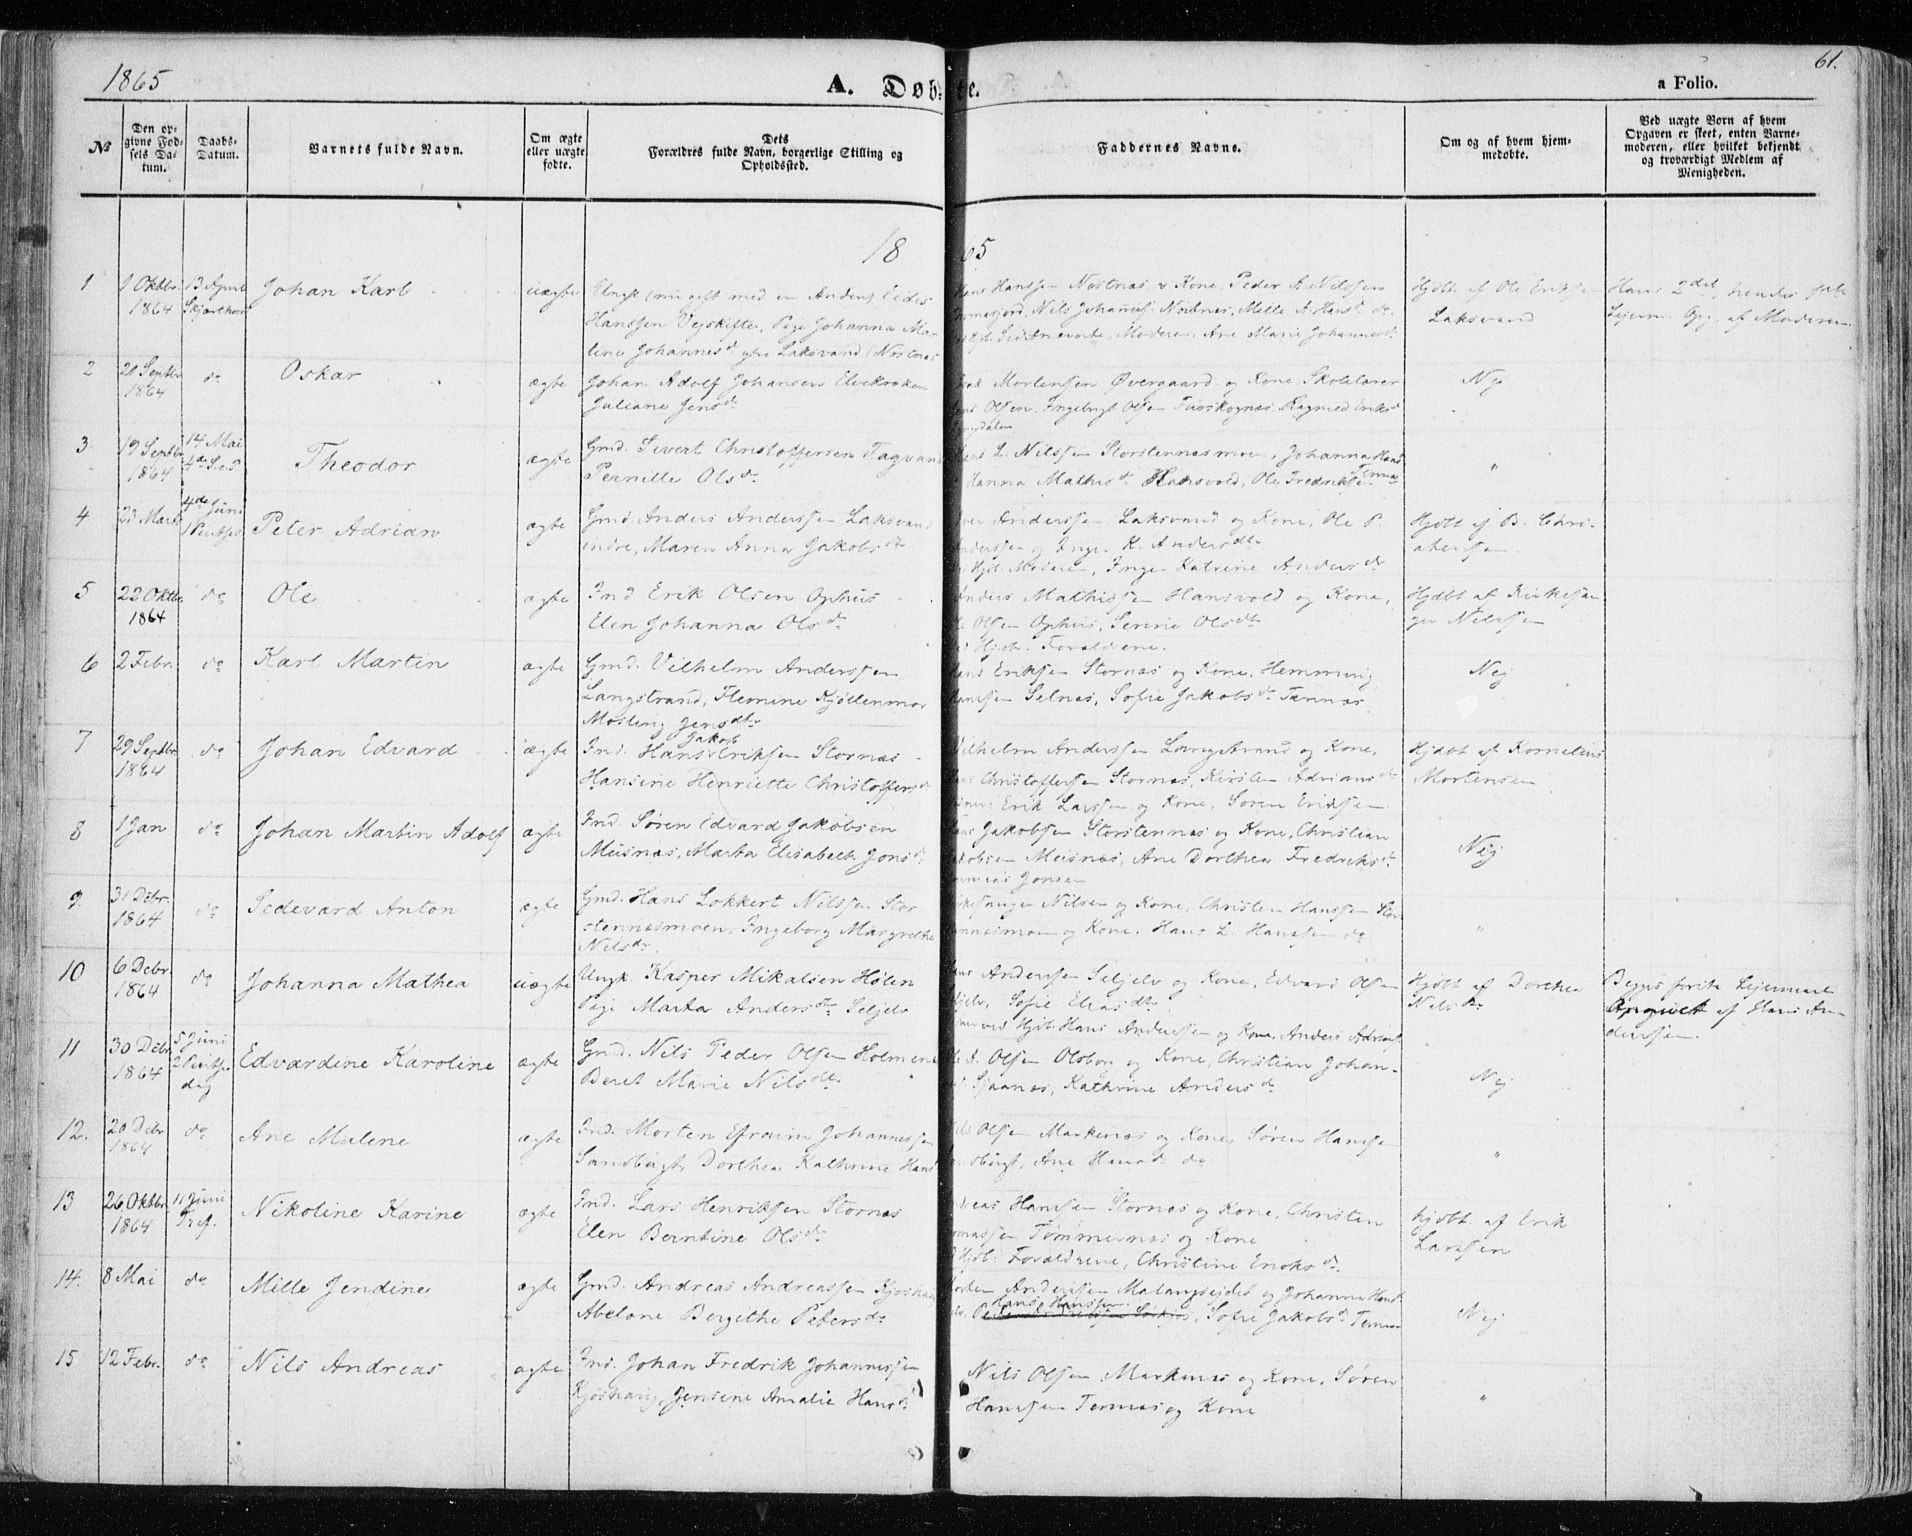 1865
A. Døbte.
a Folio.
61.
No
Den opgivne Fødsels Datum.
Daabs-Datum.
Barnets fulde Navn.
Om ægte eller uægte fødte.
Dets Forældres fulde Navn, borgerlige Stilling og Opholdssted.
Faddernes Navne.
Om og af hvem hjemmedøbte.
Ved uægte Børn af hvem Opgaven er skeet, enten Barnemoderen, eller hvilket bekjendt og troværdigt Medlem af Menigheden.
18 65
1 1 Oktbr. 1864 13 April Skjærthorsd Johan Karl uægte Ungk (nu gift med en Anden) Eidis
Hanssen Vejskifte, Pige Johanna Mar
line Johannesdr Laksvand
Hanssen Nordnæs & Kone, Peder A. Nilssen
Nils Johannes. Nordnæs, Mille A. Hansd. do
Moderen Ane Marie Johannesdr
Hjdbt af Ole Eriksen
Laksvand
Hans 2det, hendes
Lejerm. Opg. af Moderen
2 20 Septbr 1864 do Oskar ægte Johan Adolf Johansen Elvekroken
Juliane Jensdr
Mortensen Øvergaard og Kone, Skolelærer
Olsen, Ingebrigt Olsen Ragnild Eriksd
Nej
3. 19 Septbr 1864 14 Mai 4de S. e. P. Theodor ægte Gmd. Sivert Christoffersen Tagvand
Pernille Olsdr
L. Nilssen Storstennæsmoen, Johanna Hans
Hanna Mathisdr Hansvold, Ole Fredriksen Tennæs
"
4 23 Marts 4de Juni 1 Pintsed Peter Adrian ægte Gmd. Anders Anderssen Laksvand
indre, Maren Anna Jakobsdtr
Anderssen Laksvand og Kone, Ole P.
Anderssen og Inger K. Andersdtr
Hjdb. Moderen, Inger Katrine Andersdr
Hjdbt af B. Chri-
stensen
5 22 Oktbr. 1864 do Ole ægte Ind Erik Olsen Ophus
Elen Johanna Olsdr
Anders Mathissen Hansvold og Kone,
Olsen Ophus, Serine Olsdtr
Hjdb. Forældrene.
Hjdbt af Kirkesan
ger Nilssen
6 2 Febr. do Karl Martin ægte Gmd. Vilhelm Anderssen
Langstrand, Flemine Kjøllenmor
Mosling Jensdtr
Eriksen Stornæs og Kone, Hemming
Hanssen Selnæs, Sofie Jakobsdr Tennæs
Nej
7 29 Septbr 1864 do Johan Edvard uægte Ind. Hans Jakob Eriksen Stornæs
Hansine Henriette Christoffersd
Vilhelm Anderssen Langstrand og Kone,
Christoffersen Stornæs, Kirsten Adriansdr
Erik Larssen og Kone, Søren Eriksen
Hjdbt af Kornelius
Mortensen
8 1 Jan do Johan Martin Adolf ægte Ind. Søren Edvard Jakobsen
Meisnæs, Marta Elisabeth Jonsd.
Jakobsen Storstennæs og Kone, Christian
Jakobsen Meisnæs, Ane Dorthea Fredriksdr
Jonsen
Nej
9 31 Debr. 1864 do Sedevard Anton ægte Gmd. Hans Lokkert Nilssen Stor
stennæsmoen, Ingeborg Margrethe
Nilsdr
Kirkesanger Nilsen og Kone, Christen Hanssen Stor
stennæsmoen og Kone, Hans L. Hanssen do
"
10 6 Debr. 1864 do Johanna Mathea uægte Ungk. Kasper Mikalsen Holen
Pige Marta Andersdtr Seljelv
Anderssen Seljelv og Kone, Edvard Olsen
Seljelv, Sofie Eliasdtr
Hjdb. Hans Anderssen og Kone, Anders Adrians
Hjdbt af Dorthea
Nilsdtr
Begges første Lejermaal
Angivet af Hans An-
derssen.
11 30 Debr. 1864 5 Juni 2 Pintse dag Edvardine Karoline ægte Gmd. Nils Peder Olsen Holmene
Beret Marie Nilsdtr
A. Olsen Olsborg og Kone, Christian Johan-
Sjaanæs, Kathrine Andersdr
Nej
12. 20 Debr 1864 do Ane Malene ægte Ind. Morten Efraim Johannessen
Sandbugt, Dorthea Kathrine Hansd
Nils Olsen Markenæs og Kone, Søren Hanssen
Sandbugt, Ane Hansdr do
"
13 26 Oktbr. 1864 11 Juni Tref. Nikoline Karine ægte Ind. Lars Henriksen Stornæs
Elen Berntine Olsdr
Andreas Hanssen Stornæs og Kone, Christen
Thomassen Tømmernæs og Kone
Hjdb. Forældrene, Christine Enoksdr.
hjdbt. af Erik
Larssen
14. 8 Mai do Mille Jendine ægte Gmd. Andreas Andreassen Kjoshav
Abelone Bergithe Petersdr
Morten Anderssen Malangseidet og Johanna Hansd
Hans Hanssen, Sofie Jakobsdr Tennæs
Nej
15 12 Febr. do Nils Andreas ægte Ind. Johan Fredrik Johannessen
Kjoshaug, Jensine Amalie Hansdr
Nils Olsen Markenæs og Kone, Søren
Hanssen Tennæs og Kone
"